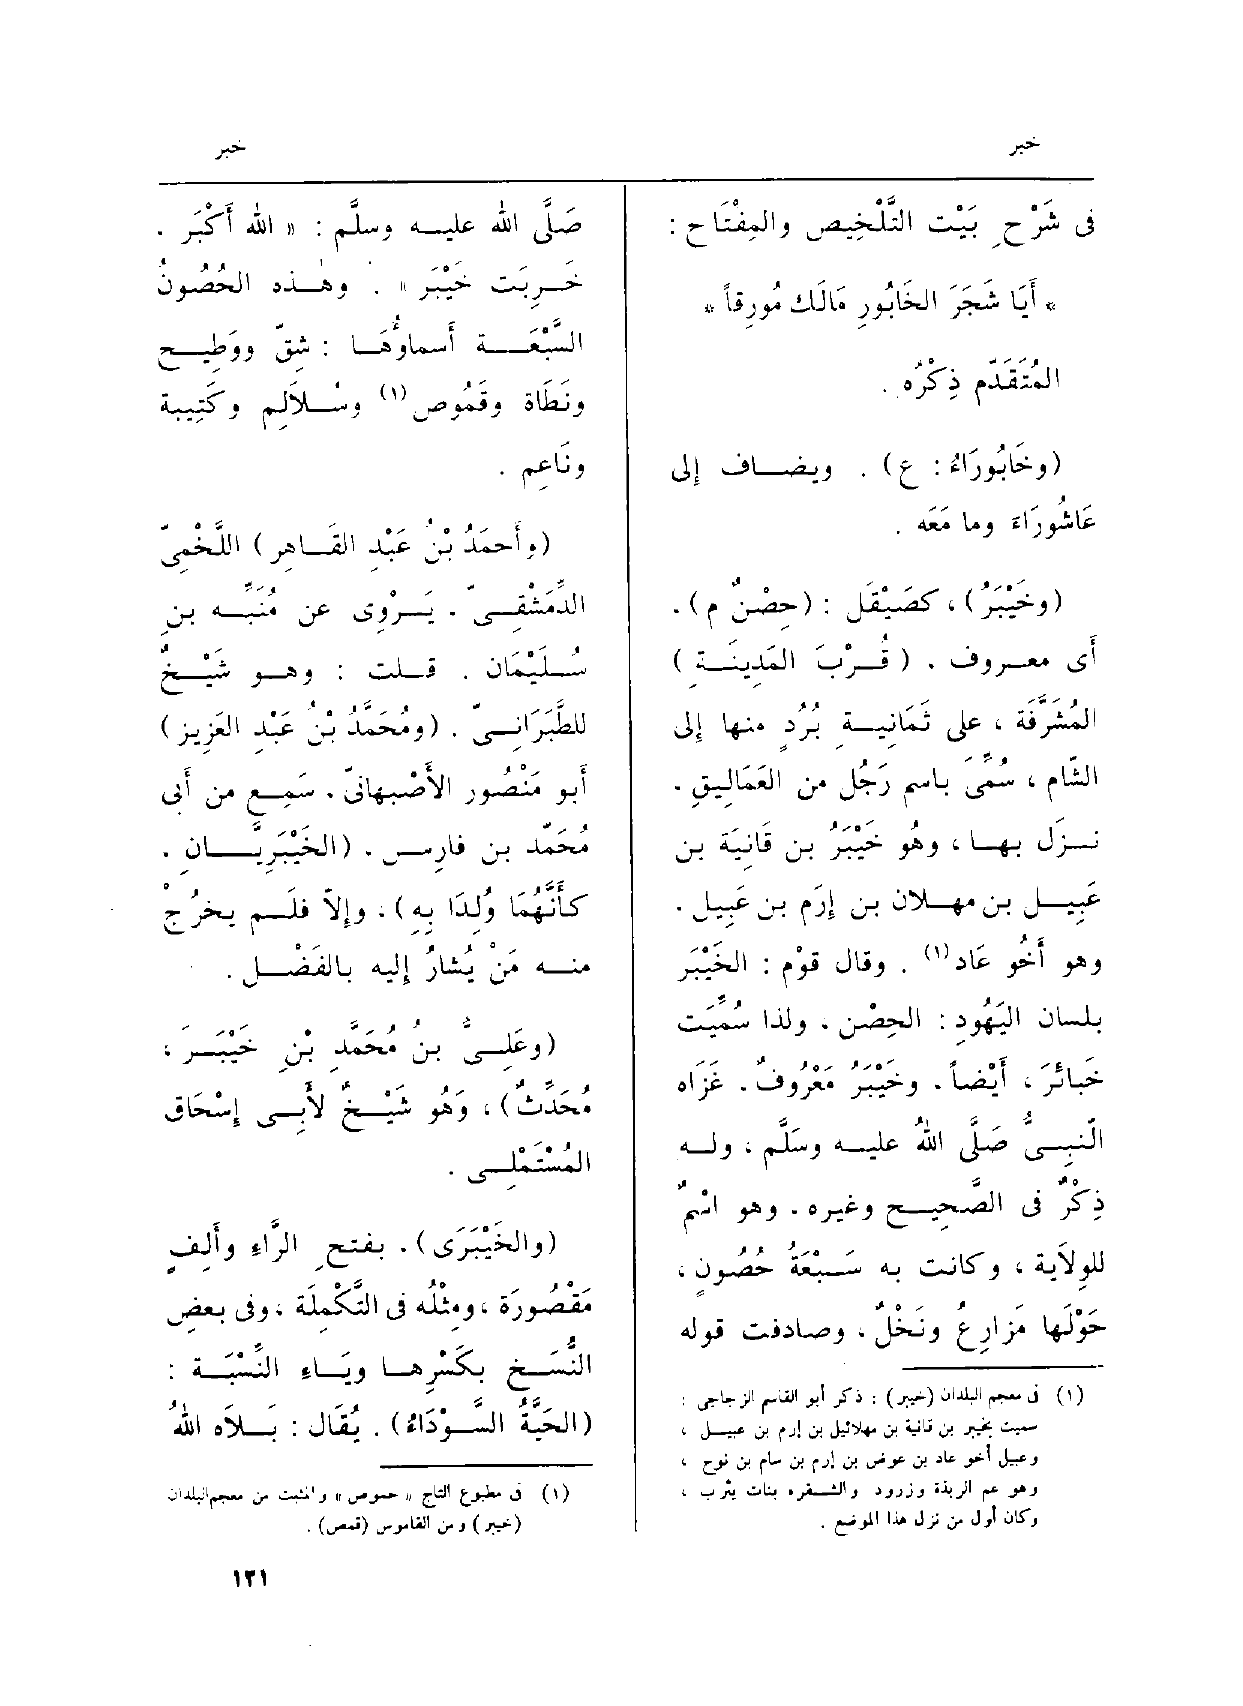 خبر
خبر
فى شَرْح بَيْت التَّلْخِيص والمِفْتَاح :
* أَيَا شَجَرَ الخَابُورِ مَالَك مُورِقاً *
المُتَقَدّم ذِكْرُه .
(وخَابُورَاءُ : ع) . ويضاف إلى
عَاشُورَاءَ وما مَعَه .
(وخَيْبَرُ) ، كصَيْقَل : (حِصْنٌ م) .
أَى معروف . (قُرْبَ المَدِينَة)
المُشَرَّفَة ، على ثَمَانِية بُرُدٍ منها إلى
الشّام ، سُمِّىَ باسم رَجُل من العَمَالِيقِ .
نزل بها ، وهُو خَيْبَرُ بن قَانِيَة بن
عَبِيل بن مهلان بن إرَم بن عَبِيل .
وهو أَخُو عَاد(١) . وقال قوْم : الخَيْبَر
بلسان اليَهُودِ : الحِصْن ، ولذا سُمِّيَت
خَبائرَ ، أَيْضاً . وخَيْبَرُ مَعْرُوفٌ . غَزَاه
النّبِىُّ صَلَّى اللهُ عليه وسَلَّم ، وله
ذِكْرٌ فى الصَّحِيح وغيره . وهو اسْمٌ
للوِلَاية ، وكانت به سَبْعَةُ حُصُونٍ ،
حَوْلَها مَزارِعُ ونَخْلٌ ، وصادفت قوله
(١) فى معجم البلدان (خيبر) : ذكر أبو القاسم الزجاجى :
سميت بخيبر بن قانية بن مهلائيل بن إرم بن عبيل ،
وعبيل أخو عاد بن عوض بن إرم بن سام بن نوح ،
وهو عم الربذة وزرود والشقره بنات يثرب ،
وكان أول من نزل هذا الموضع .
صَلَّى الله عليه وسلَّم : « الله أَكْبَر .
خَرِبَت خَيْبَر » . وهٰذه الحُصُونُ
السَّبْعَة أَسماؤُهَا : شِقّ ووَطِيح
ونَطَاة وقَمُوص(١) وسُلَالِم وكَتِيبة
ونَاعِم .
(وأَحمَدُ بْنُ عَبْدِ القَاهِر) اللَّخْمِىّ
الدِّمَشْقِىّ . يَرْوِى عن مُنَبِّه بن
سُلَيْمَان . قلت : وهو شَيْخٌ
للطَّبَرَانِىّ . (ومُحَمَّدُ بْنُ عَبْد العَزِيز)
أَبو مَنْصُور الأَصْبهانىّ . سَمِع من أَبى
مُحَمّد بن فارس . (الخَيْبَرِيَّان .
كأَنَّهُمَا وُلِدَا بِهِ) ، وإلاّ فلَم يخرُجْ
منه مَنْ يُشارُ إليه بالفَضْل .
(وعَلِىُّ بنُ مُحَمَّدِ بْنِ خَيْبَر ،
مُحَدِّثٌ) ، وَهُو شَيْخٌ لأَبِى إسْحَاق
المُسْتَمْلِى .
(والخَيْبَرَى) . بفتح الرَّاءِ وأَلِفٍ
مَقْصُورَة ، ومِثْلُه فى التَّكْمِلَة ، وفى بعض
النُّسَخ بكَسْرها ويَاءِ النِّسْبَة :
(الحَيَّةُ السَّوْدَاءُ) . يُقَال : بَلَاه اللهُ
(١) فى مطبوع التاج « حموص » والمثبت من معجم البلدان
(خيبر) ومن القاموس (قمص) .
١٢١